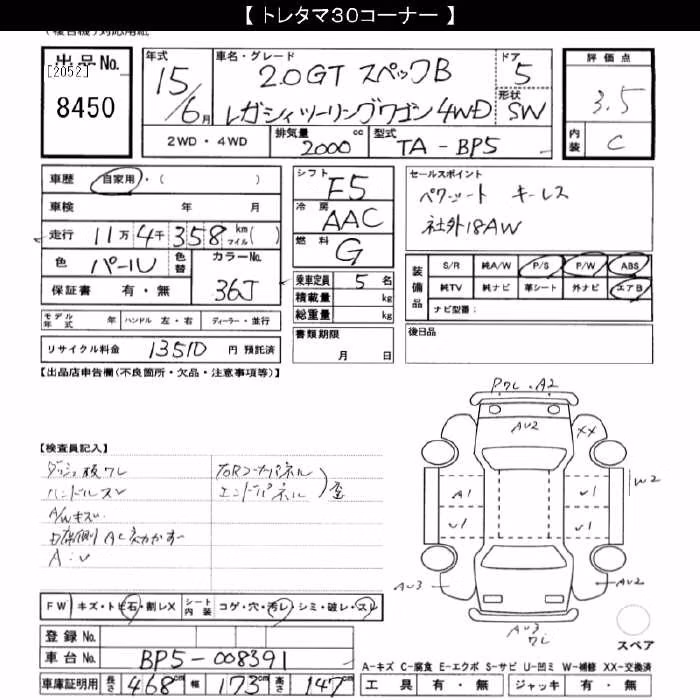 【 トレタマ30コーナー 】
出品No.
[2052]
8450
年式
15/6月
車名・グレード
2.0GT スペックB
レガシィツーリングワゴン 4WD
ドア
5
形状
SW
2WD・4WD
排気量
2000 cc
型式
TA-BP5
評価点
3.5
内装
C
車歴 自家用・( )
車検 年 月
走行 11万4千358 km マイル( )
色 パール 色替 カラーNo. 36J
保証書 有・無
モデル年式 年 ハンドル 左・右 ディーラー・並行
リサイクル料金 13510 円 預託済
シフト F5
冷房 AAC
燃料 G
乗車定員 5 名
積載量 kg
総重量 kg
書類期限
月 日
セールスポイント
パワーシート キーレス
社外18AW
装備品
S/R 純A/W P/S P/W ABS
純TV 純ナビ 革シート 外ナビ エアB
ナビ型番:
後日品
【出品店申告欄(不良箇所・欠品・注意事項等)】
【検査員記入】
ダッシュ板ワレ
ハンドルスレ
A/Wキズ
A:U
エンドパネル
歪
ワレ・A2
AU2
XX
W2
A1
U1
U1
U1
AU3
AU2
AU3
ワレ
スペア
FW キズ・トビ石・割レX シート内装 コゲ・穴・汚レ・シミ・破レ・スレ
登録No.
車台No. BP5-008391
車庫証明用 長さ 468cm 幅 173cm 高さ 147cm
A-キズ C-腐食 E-エクボ S-サビ U-凹ミ W-補修 XX-交換済
工具 有・無 ジャッキ 有・無